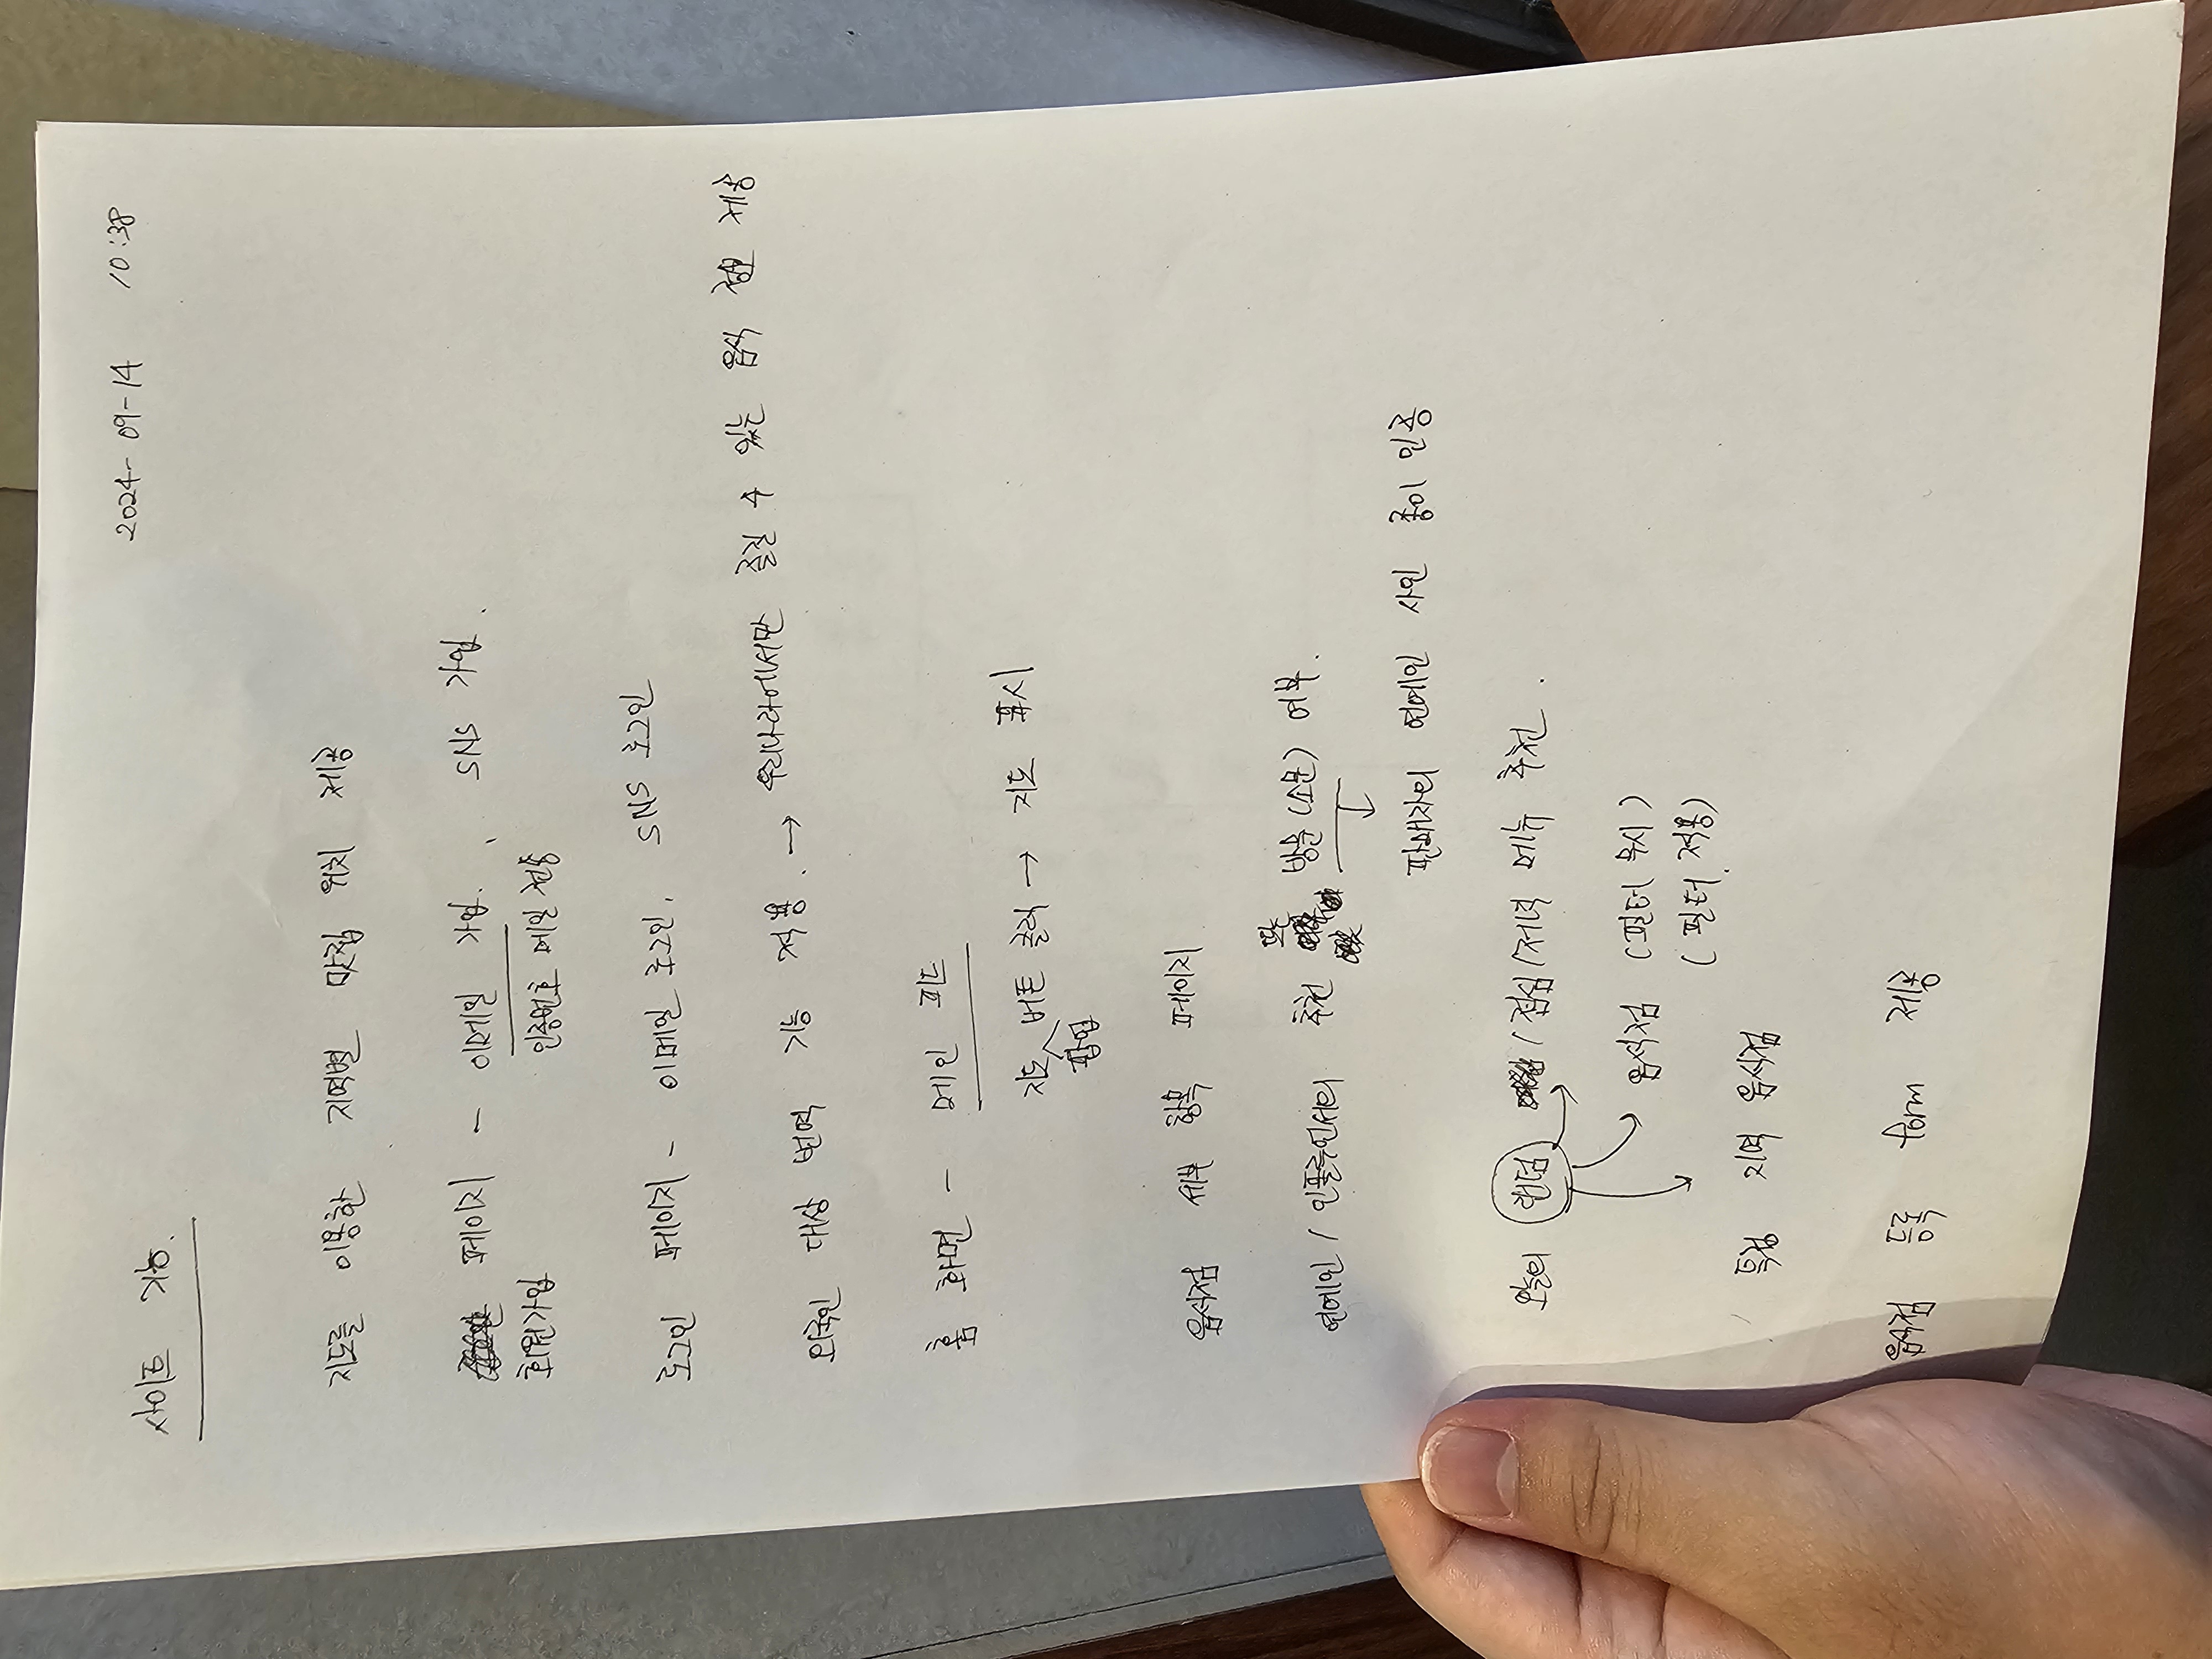 2024-09-14 10:38
사이트 기능.
지도를 이용한 지역별 맛집 위치 제공
페이지 - 이메일 가입. , SNS 가입.
회원가입 인증번호 메일 전송
로그인 페이지 - 이메일 로그인, SNS 로그인
외국인 대상 번역 기능 적용. → 우리나라에서만 즐길 수 있는 음식 정보 제공
홈 화면 - 메인 피드
지도 버튼 클릭 → 지도 표시
팝업
음식점 세부 항목 페이지
또는
연예인 / 인플루언서의 추천 방문(소문) 여부.
↓
판매자의 연예인 사인 종이 인증
오늘의 랜덤 /점심/저녁 메뉴 추천.
음식점 (필터 무시)
(필터 적용)
특정 지역 음식점
음식점 등록 form 제공